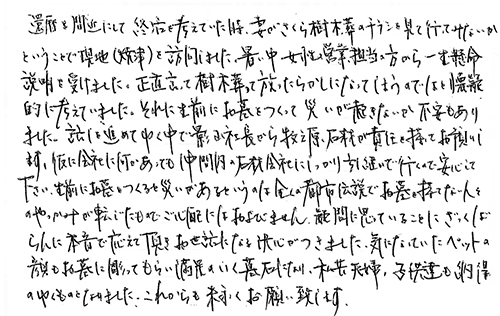 還暦を間近にして終活を考えていた時、妻がさくら樹木葬のチラシを見て行ってみないか
ということで現地(焼津)を訪問しました。暑い中女性営業担当の方から一生懸命
説明を受けました。正直言って樹木葬って放ったらかしになってしまうのではと懐疑
的に考えていました。それに生前にお墓をつくって災いが起きないか不安もあり
ました。話を進めてゆく中で 社長から牧之原石材が責任を持ってお預りし
ます、仮に会社に何かあっても仲間内の石材会社にしっかり引き継いで行くので安心して
下さい。生前にお墓をつくると災いがあるというのは全くの都市伝説でお墓を持てない人々
のやっかみが転じたものでご心配にはおよびません。疑問に思っていることに、ざっくば
らんに本音で応えて頂きお世話になる決心がつきました。気になっていたペットの
顔もお墓に彫ってもらい満足のいく墓石になり、私共夫婦、子供達も納得
のゆくものとなりました。これからも末永くお願い致します。